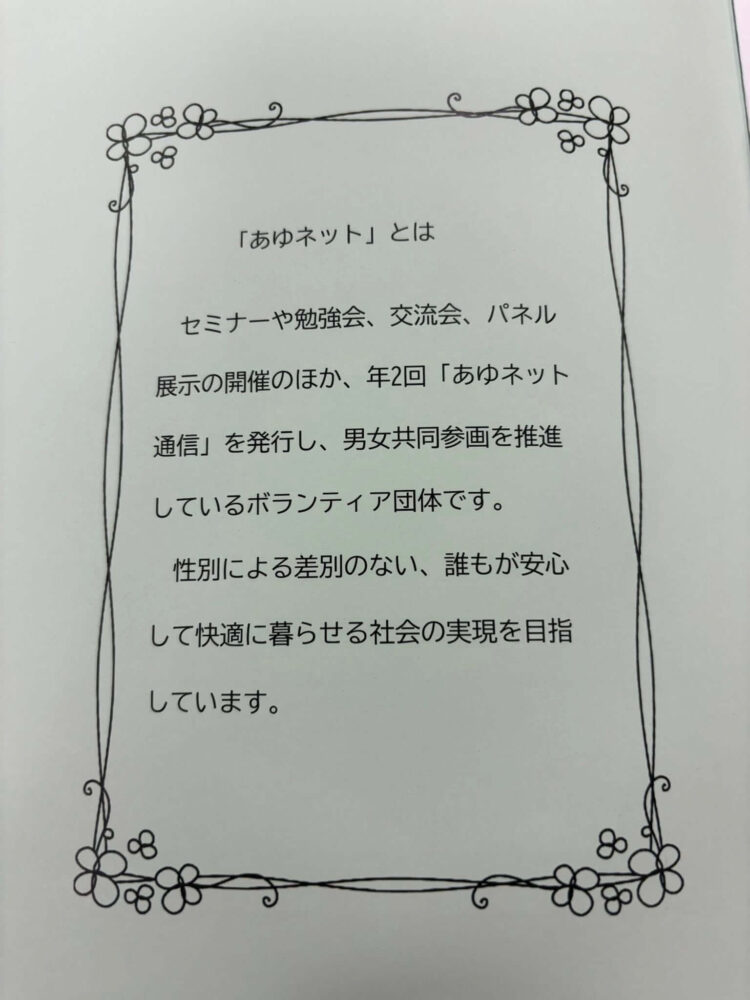 「あゆネット」とは
セミナーや勉強会、交流会、パネル
展示の開催のほか、年2回「あゆネット
通信」を発行し、男女共同参画を推進
しているボランティア団体です。
性別による差別のない、誰もが安心
して快適に暮らせる社会の実現を目指
しています。